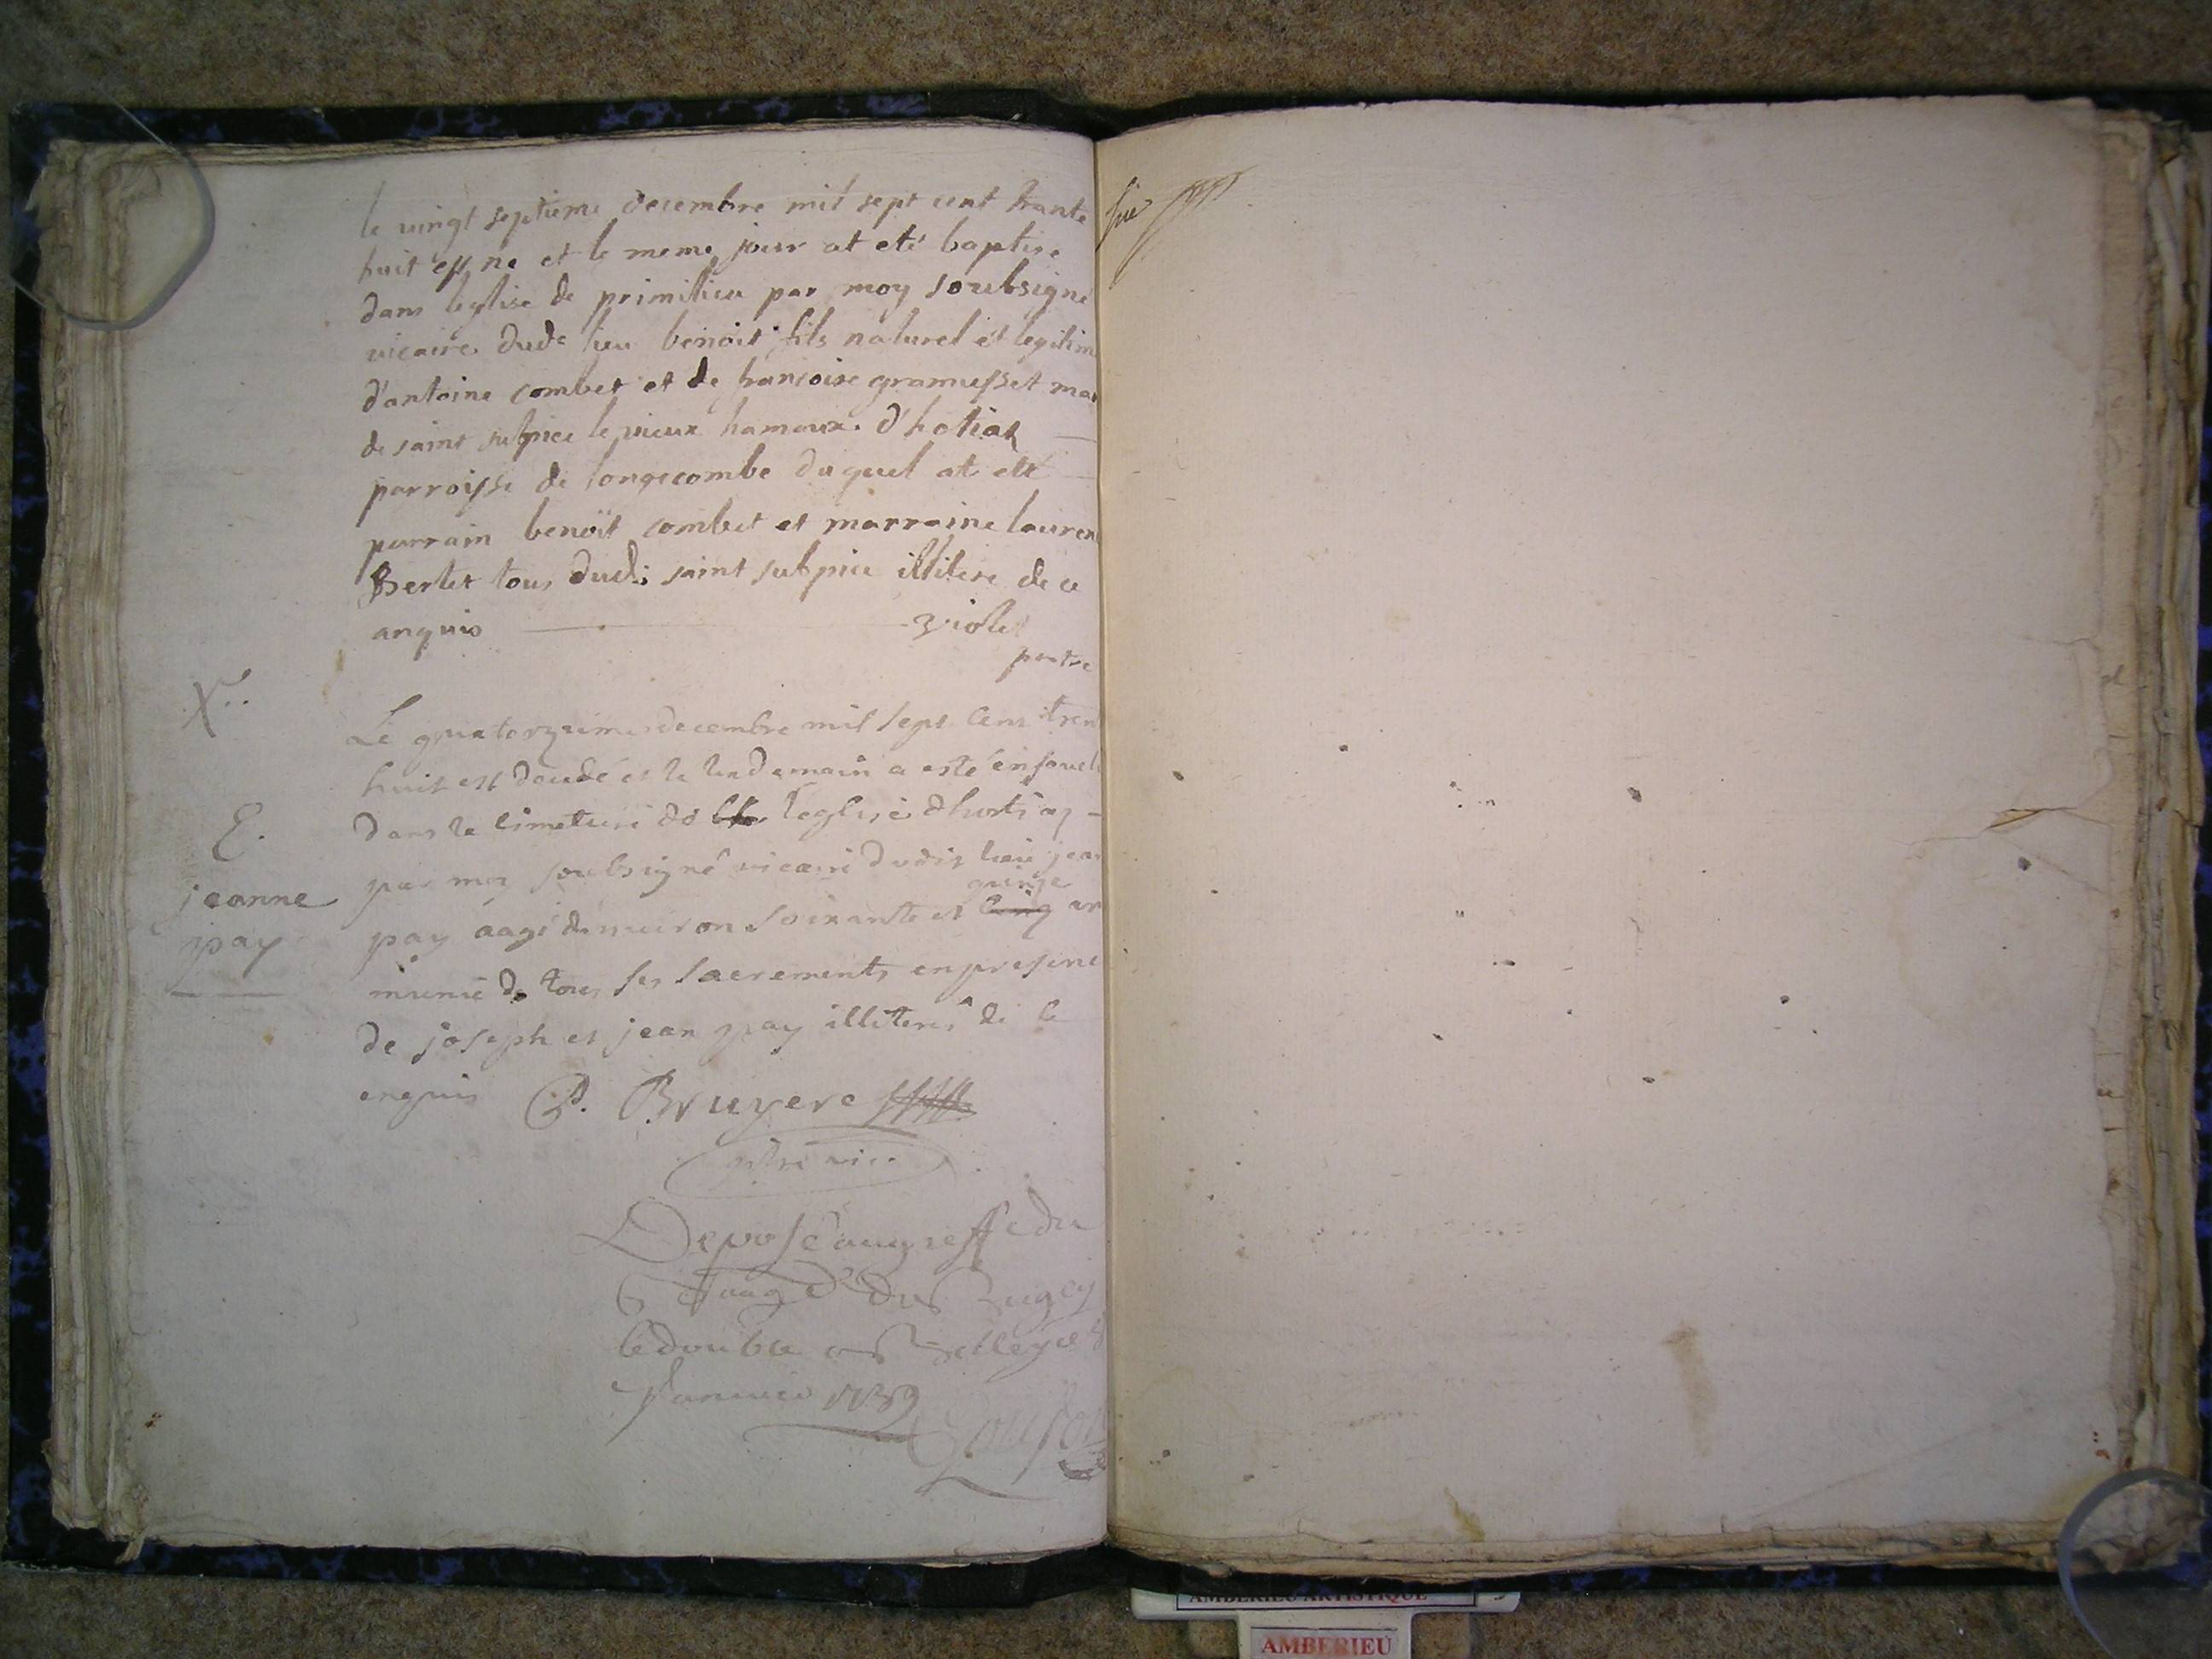 le vingt septieme decembre mil sept cent trante
huit est ne et le meme jour at eté baptise
dans leglise de primilieu par moy soubsigné
vicaire dudt lieu benoit fils naturel et legitim
d'antoine combet et de francoise gramusset ma
de saint sulpice le vieux hameaux d'hotiat
parroisse de longecombe du quel at eté
parrain benoït combet et marraine lauren
Berlet tous dudt saint sulpice illitere de ce
anquis violet
prtre
X..
Le quatorzieme decembre mil sept cens tren
huit est decedé et le lendemain a esté enseveli
dans le cimetiere de l'eglise d'hosti az
par moy soubsigné vicaire dudit lieu jean
quinze
pay aagé d'environ soixante et cinq an
E.
jeanne
pay
munie de tous ses sacrements en presene
de joseph et jean pay illiteres de ce
enquis P. Bruyere
ptre vic.
Deposé au greffe du
Bailliage du Bugey
le double a Belley le 8
Janvier 1739